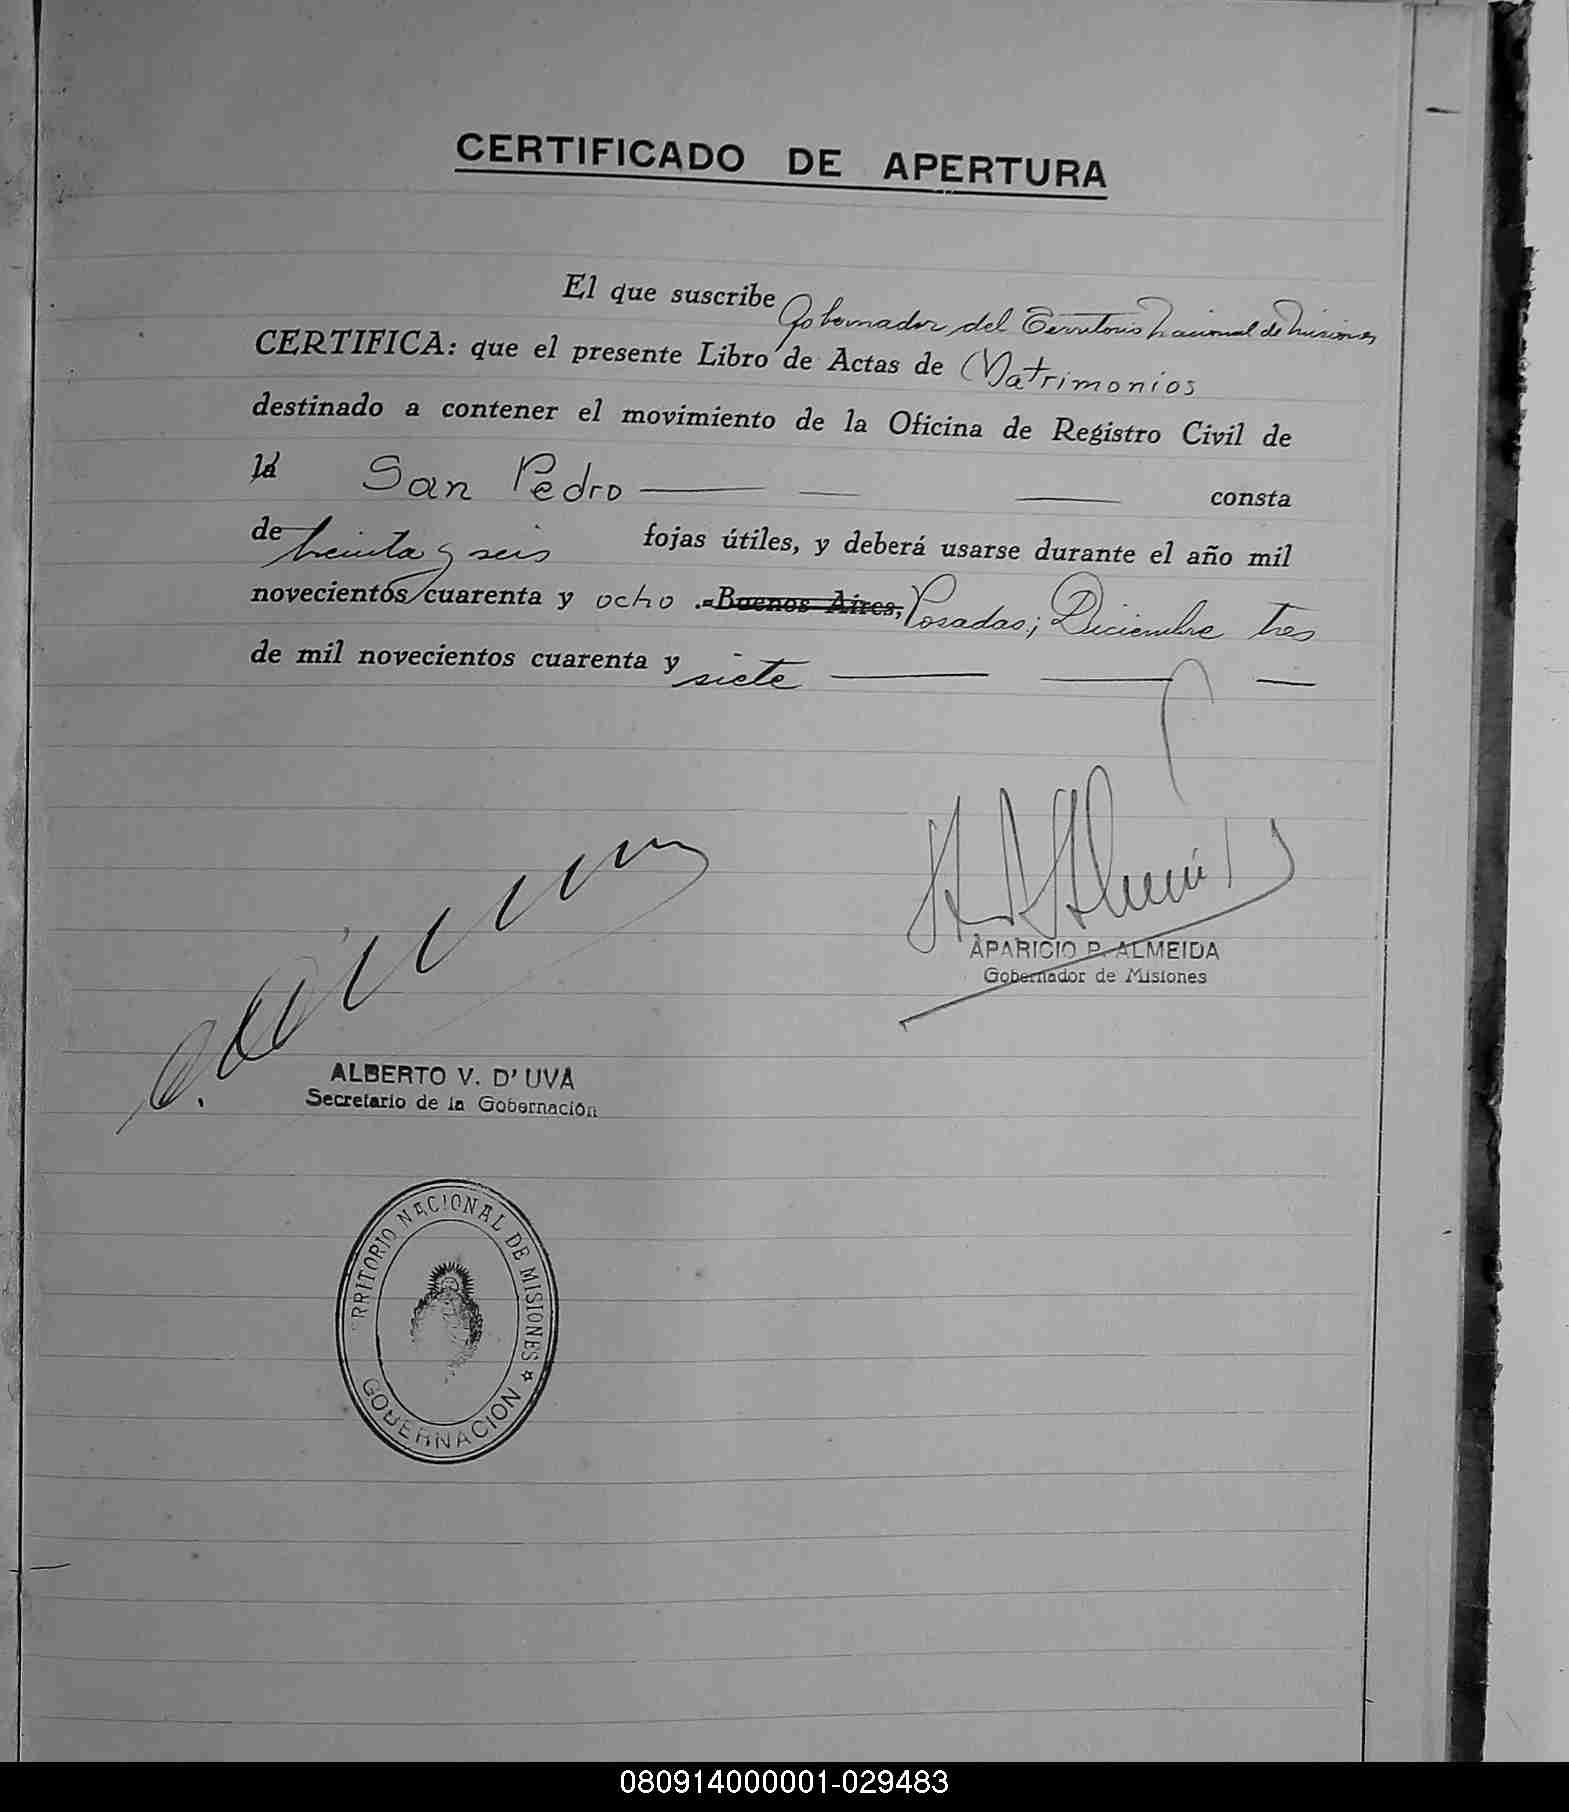 CERTIFICADO DE APERTURA
El que suscribe Gobernador del Territorio Nacional de Misiones
CERTIFICA: que el presente Libro de Actas de Matrimonios
destinado a contener el movimiento de la Oficina de Registro Civil de
la San Pedro — — — consta
de treinta y seis fojas útiles, y deberá usarse durante el año mil
novecientos cuarenta y ocho .- Buenos Aires, Posadas; Diciembre tres
de mil novecientos cuarenta y siete — — —
APARICIO P. ALMEIDA
Gobernador de Misiones
ALBERTO V. D'UVA
Secretario de la Gobernación
RRITORIO NACIONAL DE MISIONES ☆
GOBERNACION
080914000001-029483